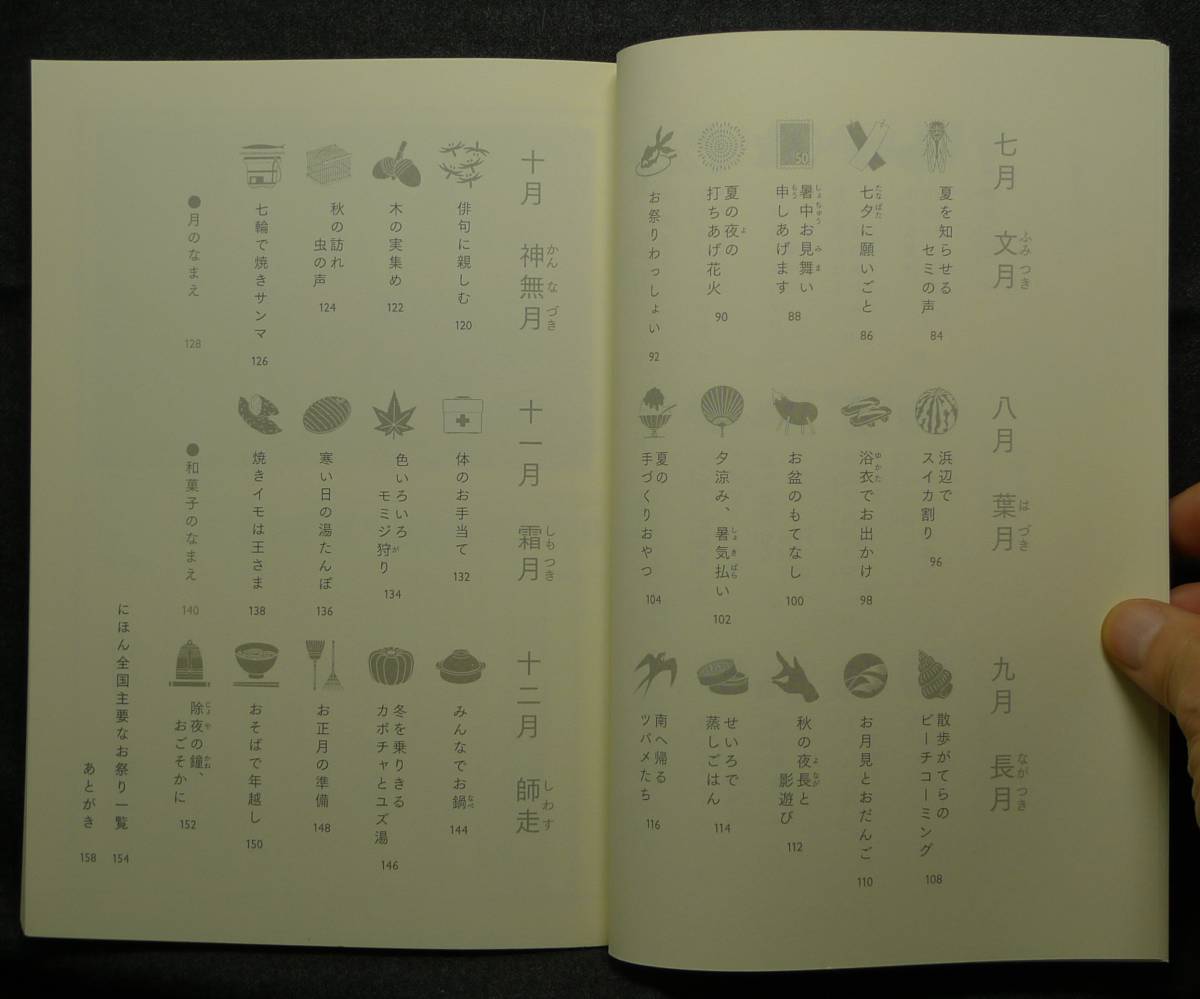 七月 文月
ふみつき
夏を知らせる
セミの声
84
七夕に願いごと
たなばた
86
暑中お見舞い
しょちゅう みま
申しあげます
もう
88
夏の夜の
よ
打ちあげ花火
90
お祭りわっしょい
92
50
八月 葉月
はづき
浜辺で
スイカ割り
96
浴衣でお出かけ
ゆかた
98
お盆のもてなし
100
夕涼み、暑気払い
しょきばら
102
夏の
手づくりおやつ
104
九月 長月
ながつき
散歩がてらの
ビーチコーミング
108
お月見とおだんご
110
秋の夜長と
よなが
影遊び
112
せいろで
蒸しごはん
114
南へ帰る
ツバメたち
116
十月 神無月
かんなづき
俳句に親しむ
120
木の実集め
122
秋の訪れ
虫の声
124
七輪で焼きサンマ
126
●月のなまえ
128
十一月 霜月
しもつき
体のお手当て
132
色いろいろ
モミジ狩り
が
134
寒い日の湯たんぽ
136
焼きイモは王さま
138
●和菓子のなまえ
140
十二月 師走
しわす
みんなでお鍋
なべ
144
冬を乗りきる
カボチャとユズ湯
146
お正月の準備
148
おそばで年越し
150
除夜の鐘、
じょや かね
おごそかに
152
にほん全国主要なお祭り一覧
154
あとがき
158